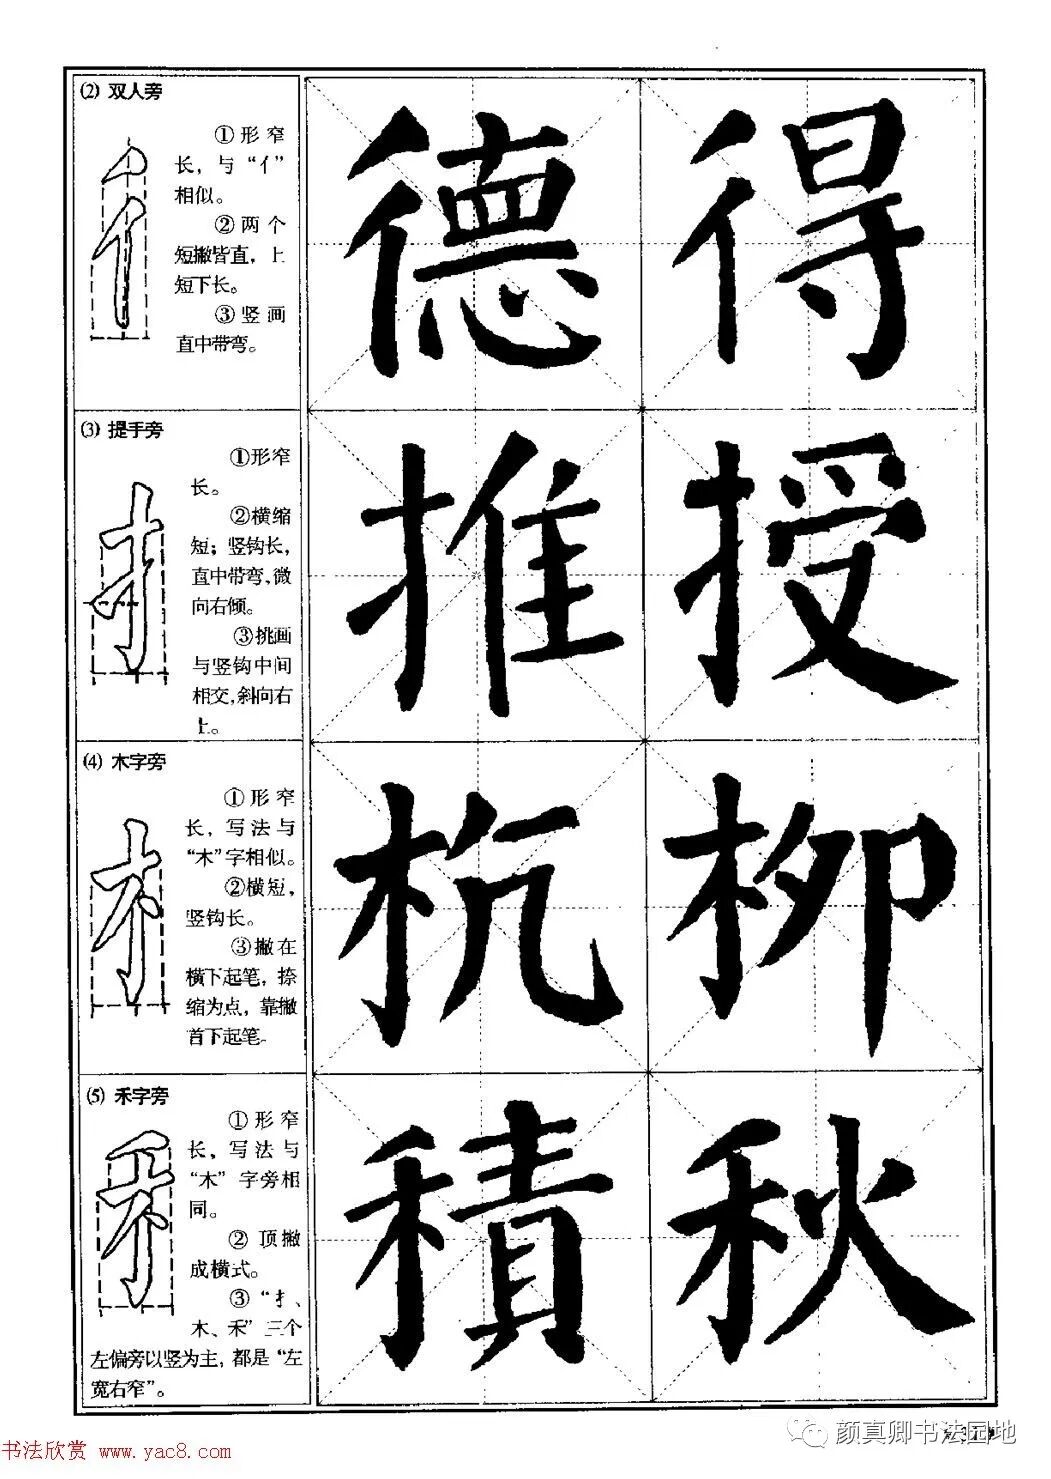 ⑵ 双人旁
①形窄
长，与“亻”
相似。
②两个
短撇皆直，上
短下长。
③竖画
直中带弯。
德 得
⑶ 提手旁
①形窄
长。
②横缩
短；竖钩长，
直中带弯，微
向右倾。
③挑画
与竖钩中间
相交，斜向右
上。
推 授
⑷ 木字旁
①形窄
长，写法与
“木”字相似。
②横短，
竖钩长。
③撇在
横下起笔，捺
缩为点，靠撇
首下起笔。
杭 柳
⑸ 禾字旁
①形窄
长，写法与
“木”字旁相
同。
②顶撇
成横式。
③“扌、
木、禾”三个
左偏旁以竖为主，都是“左
宽右窄”。
積 秋
书法欣赏 www.yac8.com
颜真卿书法园地